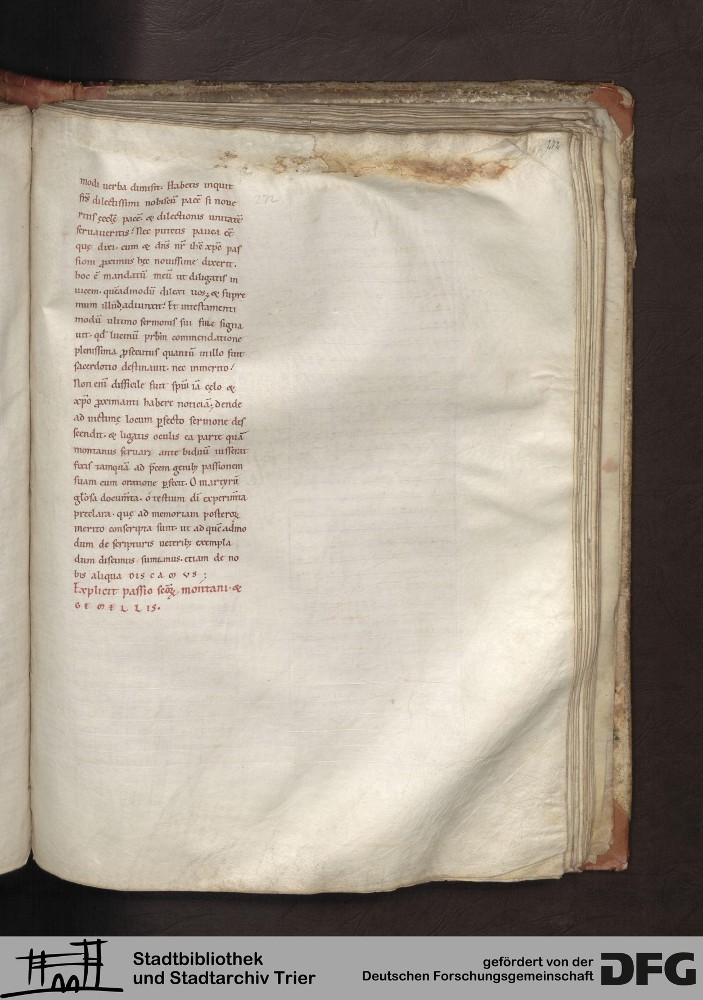 272
272
modi uerba dimisit. Habetis inquit
frs̄ dilectissimi nobiscū pacē si noue
ritis pacē & dilectionis unitatē
seruaueritis! Nec putetis pauca eē
quę dixi. cum & dns̄ nr̄ ihc̄ xpc̄ pas
sioni ꝓximus hęc nouissime dixerit.
hoc ē mandatū meū ut diligatis in
uicem. quēadmodū dilexi uos; & supre
mum illud adiunxit! Et intestamenti
modū ultimo sermonis sui fine signa
uit. qd̄ lucinū prb̄m commendatione
plenissima ꝓsecutus quantū in illo fuit
sacerdotio destinauit. nec inmerito!
Non enī difficile fuit spū iā cęlo &
xp̄o ꝓximanti habere noticiā; dende
ad uictimę locum ꝑfecto sermone des
cendit. & ligatis oculis ea parte quā
montanus seruari ante biduū iusserat
fixis tamquā ad p̄cem genib; passionem
suam cum oratione ꝑfecit. O martyrū
gl̄osa documt̄a. o testium dī experimt̄a
pręclara. quę ad memoriam posteroꝝ
merito conscripta sunt. ut ad quē admo
dum de scripturis ueterib; exempla
dum discimus sumimus. etiam de no
bis aliqua DISCAMVS;
Explicit passio scōꝝ montani. &
GEMELLIS.
Stadtbibliothek
und Stadtarchiv Trier
gefördert von der
Deutschen Forschungsgemeinschaft
DFG